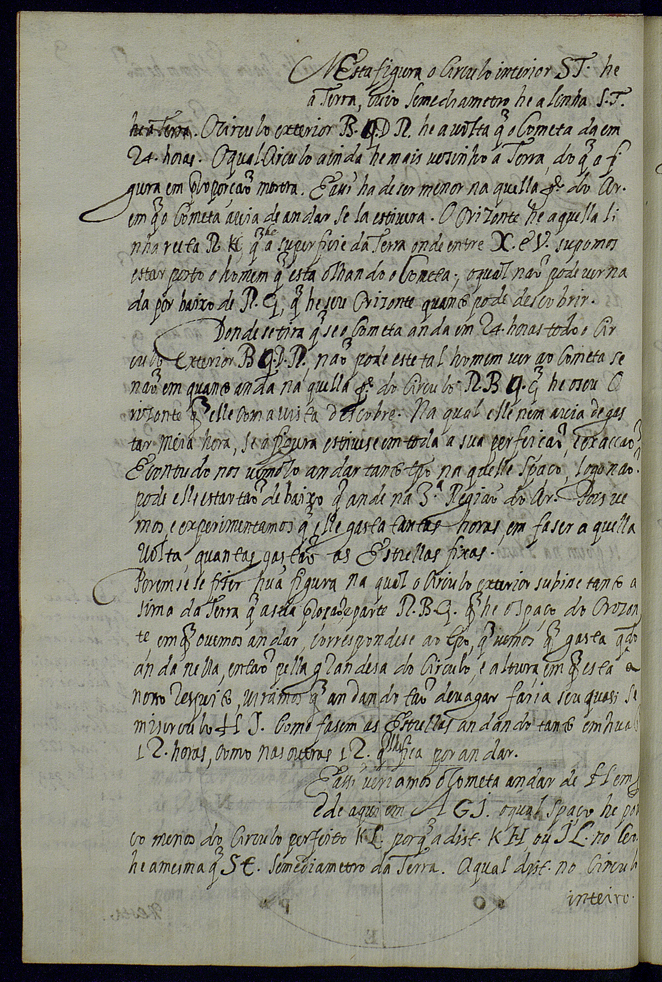 Nesta figura o Circulo interior ST. he
a Terra, cuio Semediametro he a linha S.T.
he a Terra. O circulo exterior B.Q.D N. he a volta q̃ o Cometa dá em
24. horas. O qual Circulo ainda he mais vesinho a Terra do q̃ a fi
gura em proporçaõ mostra. E assi ha de ser menor na quella pte. do Ar.
em q̃ o Cometa avia de andar se la estivera. O Orizonte he aquella li
nha recta N. K q̃ a superficie da Terra onde entre X. e V. supomos
estar posto o homem q̃ esta olhando o Cometa; o qual naõ pode ver na
da por baixo de N. Q, q̃ he seu Orizonte quanto pode descobrir.
Donde se tira q̃ se o Cometa anda em 24. horas todo o Cir
culo Exterior B Q.D.N. naõ pode este tal homem ver ao Cometa se
naõ em quanto anda na quella pte. do Circulo N.B Q. q̃ he o seu O
rizonte q̃ elle com a vista descobre. Na qual elle nem avia de gas
tar meia hora, se a figura estivese em toda a sua perfeicaõ, e
E contudo nos vemolo andar tanto tpo na quelle spaço, logo naõ
pode elle estar taõ de baixo q̃ ande na 3ª. Regiaõ do Ar. Pois ve
mos, e experimentamos q̃ elle gasta tantas horas em faser a quella
volta quantas gastaõ as Estrellas fixas.
Porem se se fizer huã figura na qual o Circulo exterior subise tanto a
sima da Terra q̃ a sua parte N.B.Q. q̃ he o spaço do Orizon
te em q̃ o vemos andar, correspondese ao tpo, q̃ vemos q̃ gasta qdo
anda nella, entaõ pella grandesa do Circulo, e altura em q̃ esta a
nosso respeito, viramos q̃ andando taõ devagar faria seu quasi Se
micirculo H I. Como fasem as Estrellas andando tanto em huas
12. horas, como nas outras 12. q̃ lhe fica por andar.
E assi veriamos o Cometa andar de H em G
e de aqui em A G I. o qual spaço he pou
co menos do Circulo perfeito KL. porq̃ a dist. KH ou IL. no Ceo
he a mesma q̃ St. Semediametro da Terra. A qual dist. no Circulo
inteiro.